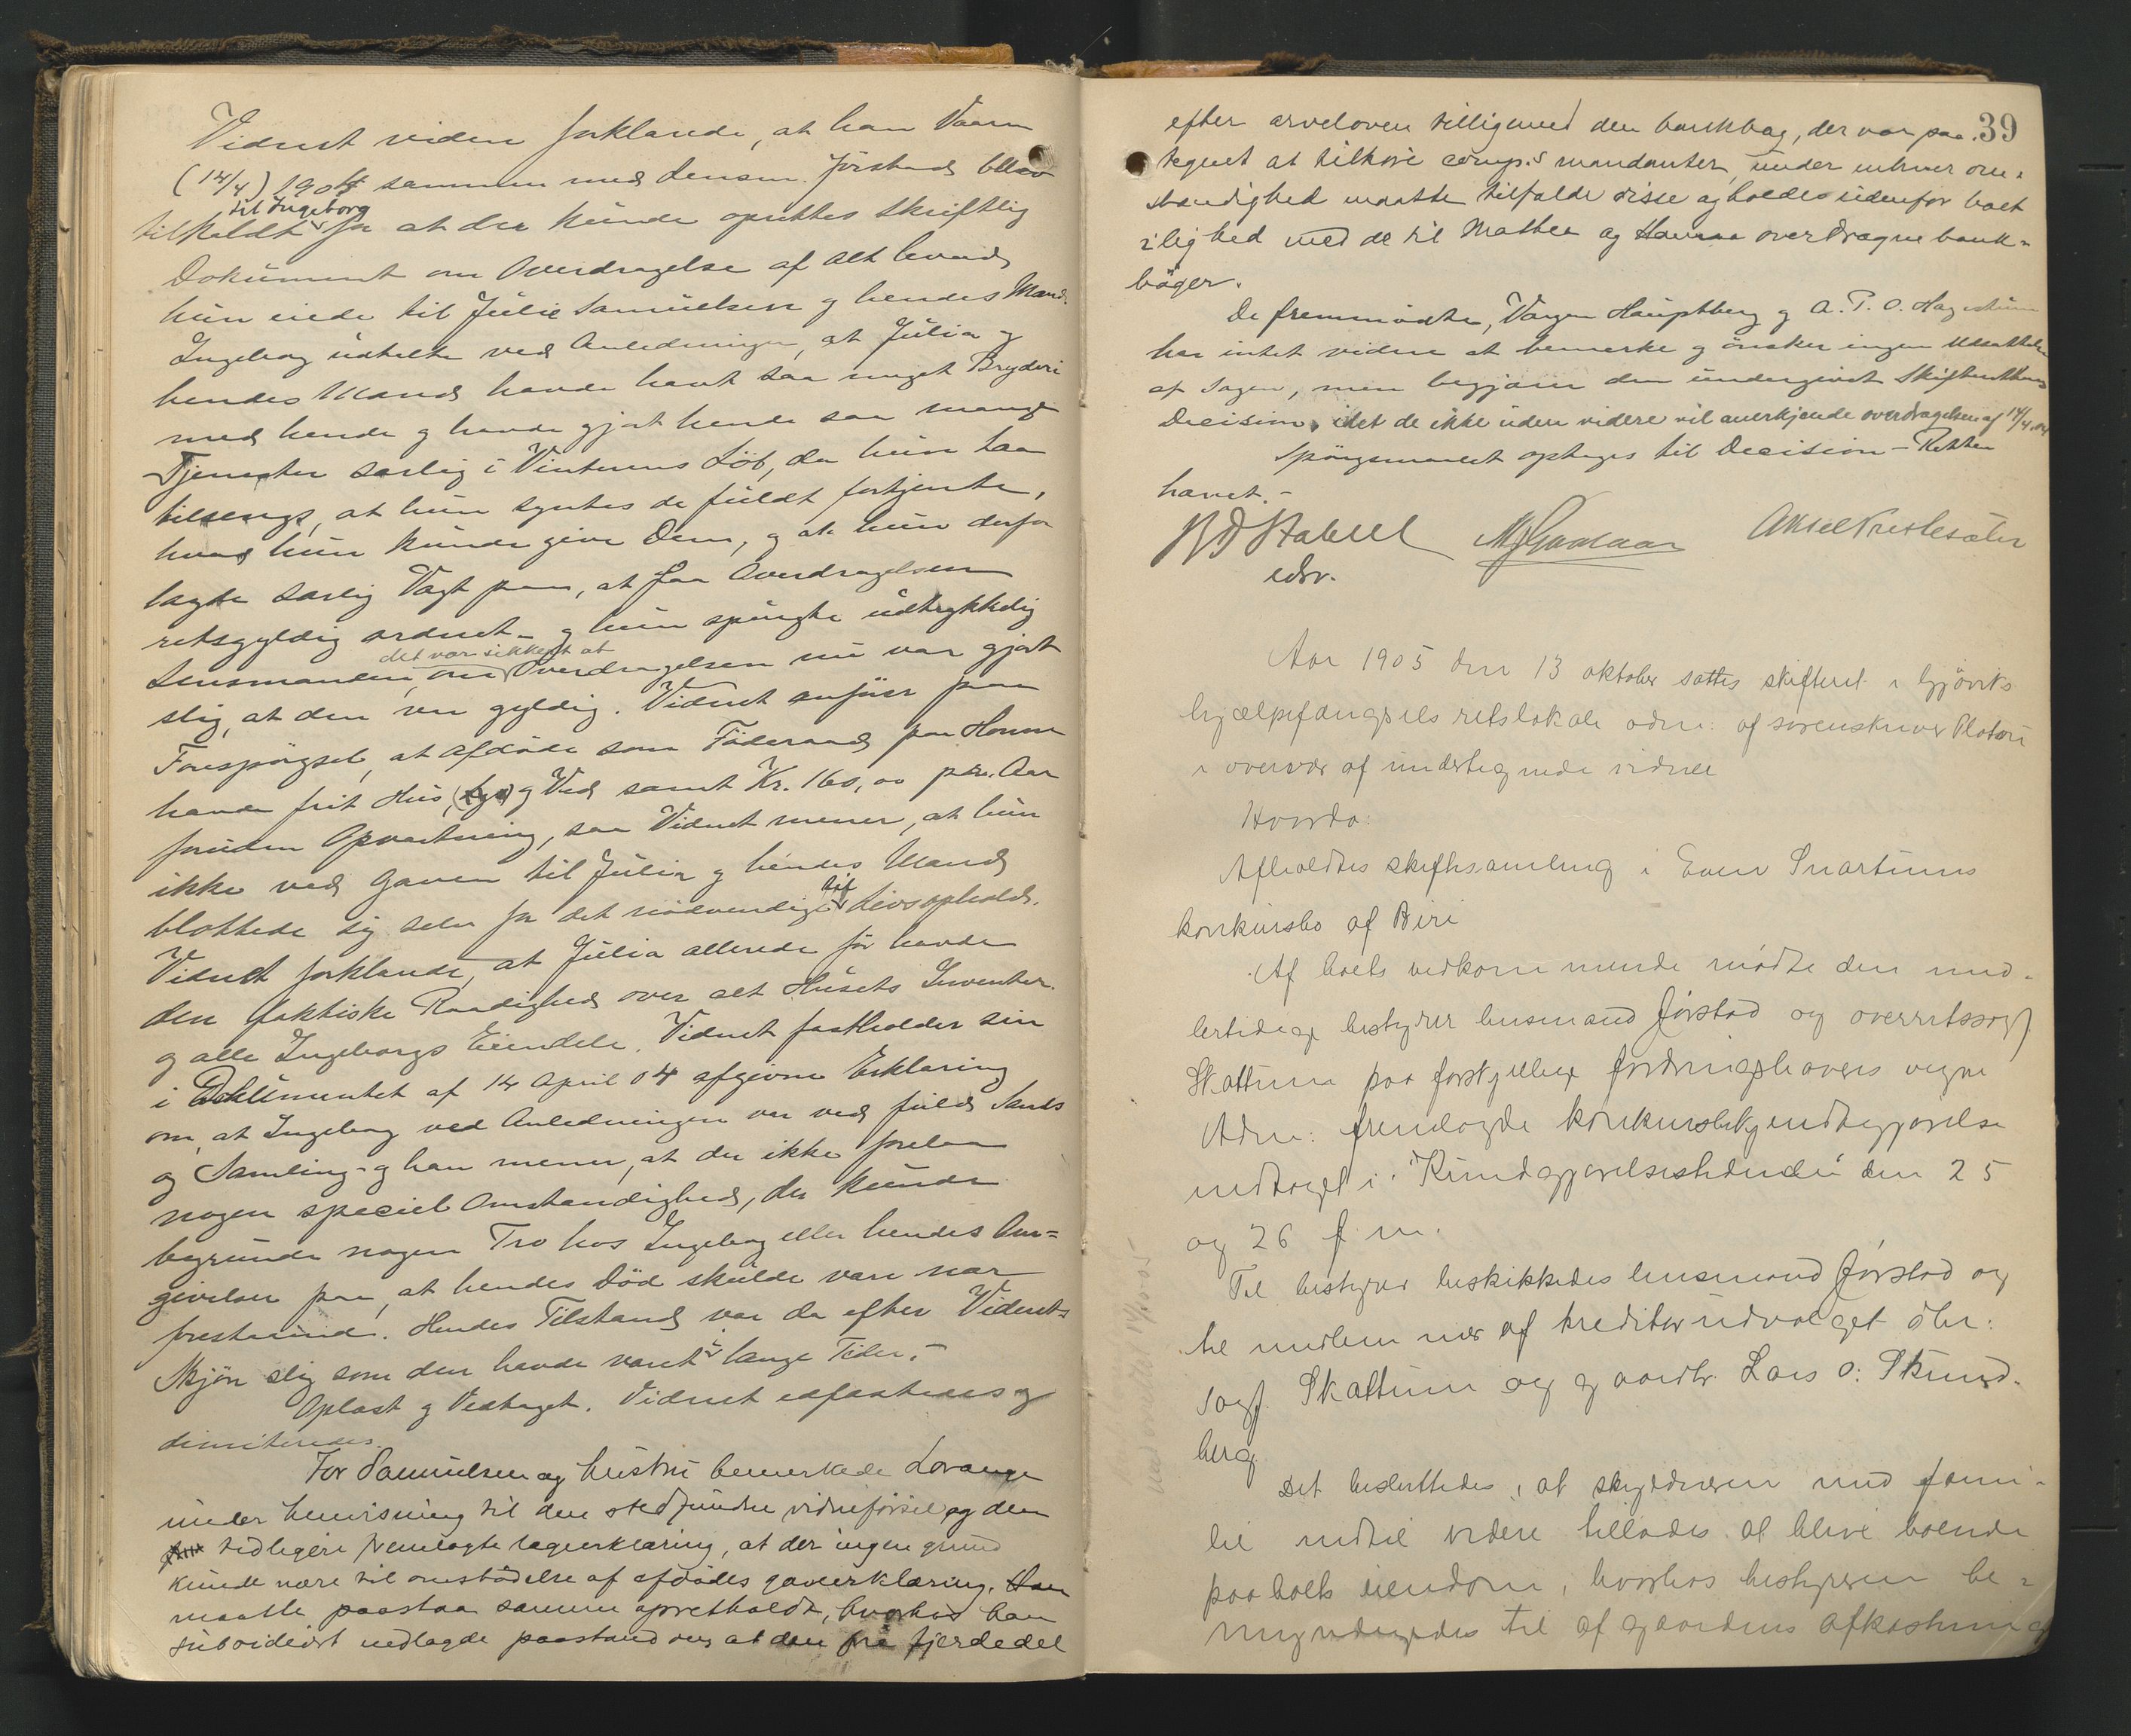 Vidnet videre forklarede, at han Vaaren
(14/4) 1904 sammen med Lensm. Jørstad blev
tilkaldt til Ingeborg for at der kunde oprettes skriftlig
Dokument om Overdragelse af alt hvad
hun eiede til Julie Samuelsen og hendes Mand.
Ingeborg udtalte ved Anledningen, at Julia og
hendes Mand havde havt saa meget Bryderi
med hende og havde gjort hende saa mange
Tjenester særlig i Vinterens Løb, da hun laa
tilsengs, at hun syntes de fuldt fortjente,
hvad hun kunde give Dem, og at hun derfor
lagde særlig Vægt paa, at faa Overdragelsen
retsgyldig ordnet - og hun spurgte udtrykkelig
Lensmanden, om det var sikkert at Overdragelsen nu var gjort
slig, at den var gyldig. Vidnet anfører paa
Forespørgsel, at afdøde som Føderaad paa Homme
havde frit Hus, og Ved samt Kr. 160,00 pr. Aar
foruden Opvartning, saa Vidnet mener, at hun
ikke ved Gaven til Julia og hendes Mand
blottede sig selv for det nødvendige til Livsophold.
Vidnet forklarede, at Julia allerede før havde
den faktiske Raadighed over alt Husets Inventar
og alle Ingeborgs Eiendele. Vidnet fastholder sin
i Dokumentet af 14 April 04 afgivne Erklæring
om, at Ingeborg ved Anledningen var ved fuld Sands
og Samling - og han mener, at der ikke forelaa
nogen speciel Omstændighed, der kunde
begrunde nogen Tro hos Ingeborg eller hendes Om=
givelser paa, at hendes Død skulde være nær
forestaaende. Hendes Tilstand var da efter Vidnets
Skjøn slig som den havde været i lange Tider. -
Oplæst og Vedtaget. Vidnet edfæstedes og
dimiteredes.
For Samuelsen og hustru bemerkede Lorange
under henvisning til den stedfundne vidneførsel og den
tidligere fremlagte lægeerklæring, at der ingen grund
kunde være til omstødelse af afdødes gaveerklæring. Han
maatte paastaa samme opretholdt, hvorhos han
subsidiært nedlagde paastand om at den fri fjerdedel
39
efter arveloven tilligemed den bankbog, der var paa=
tegnet at tilhøre comp.s mandanter, under enhver om=
stændighed maatte tilfalde disse og holdes udenfor boet
i lighed med de til Mathea og Hanna overdragne bank=
bøger.
De fremmødte, Hauptberg og A. P. O. Hagestuen
har intet videre at bemerke og ønsker ingen Udsættelse
af Sagen, men begjærer den undergivet Skifterettens
Decision, idet de ikke uden videre vil anerkjende overdragelsen af 14/4.04
Spørgsmaalet optages til Decision - Retten
hævet. -
Aksel Prestesæter
edsv.
Aar 1905 den 13 oktober sattes skifteret i Gjøviks
hjælpefængsels retslokale adm: af sorenskriver Platou
i overvær af undertegnede vidner
Hvorda:
Afholdtes skiftesamling i Even Snartums
konkursbo af Biri
Af boets vedkommende mødte den mid-
lertidige bestyrer lensmand Jørstad og overretssagf
Skattum paa forskjellige fordringshavers vegne
Adm: fremlagde konkursbekjendtgjørelse
indtaget i "Kundgjørelsestidende" den 25
og 26 f m.
Til bestyrer beskikkedes lensmand Jørstad og
til medlemmer af kreditorudvalget ovr:
sagf. Skattum og gaardbr. Lars O. Skund-
berg
Det besluttedes, at skyldneren med fami-
lie indtil videre tillades at blive boende
paa boets eiendom, hvorhos bestyreren be=
myndigedes til af gaardens afkastning